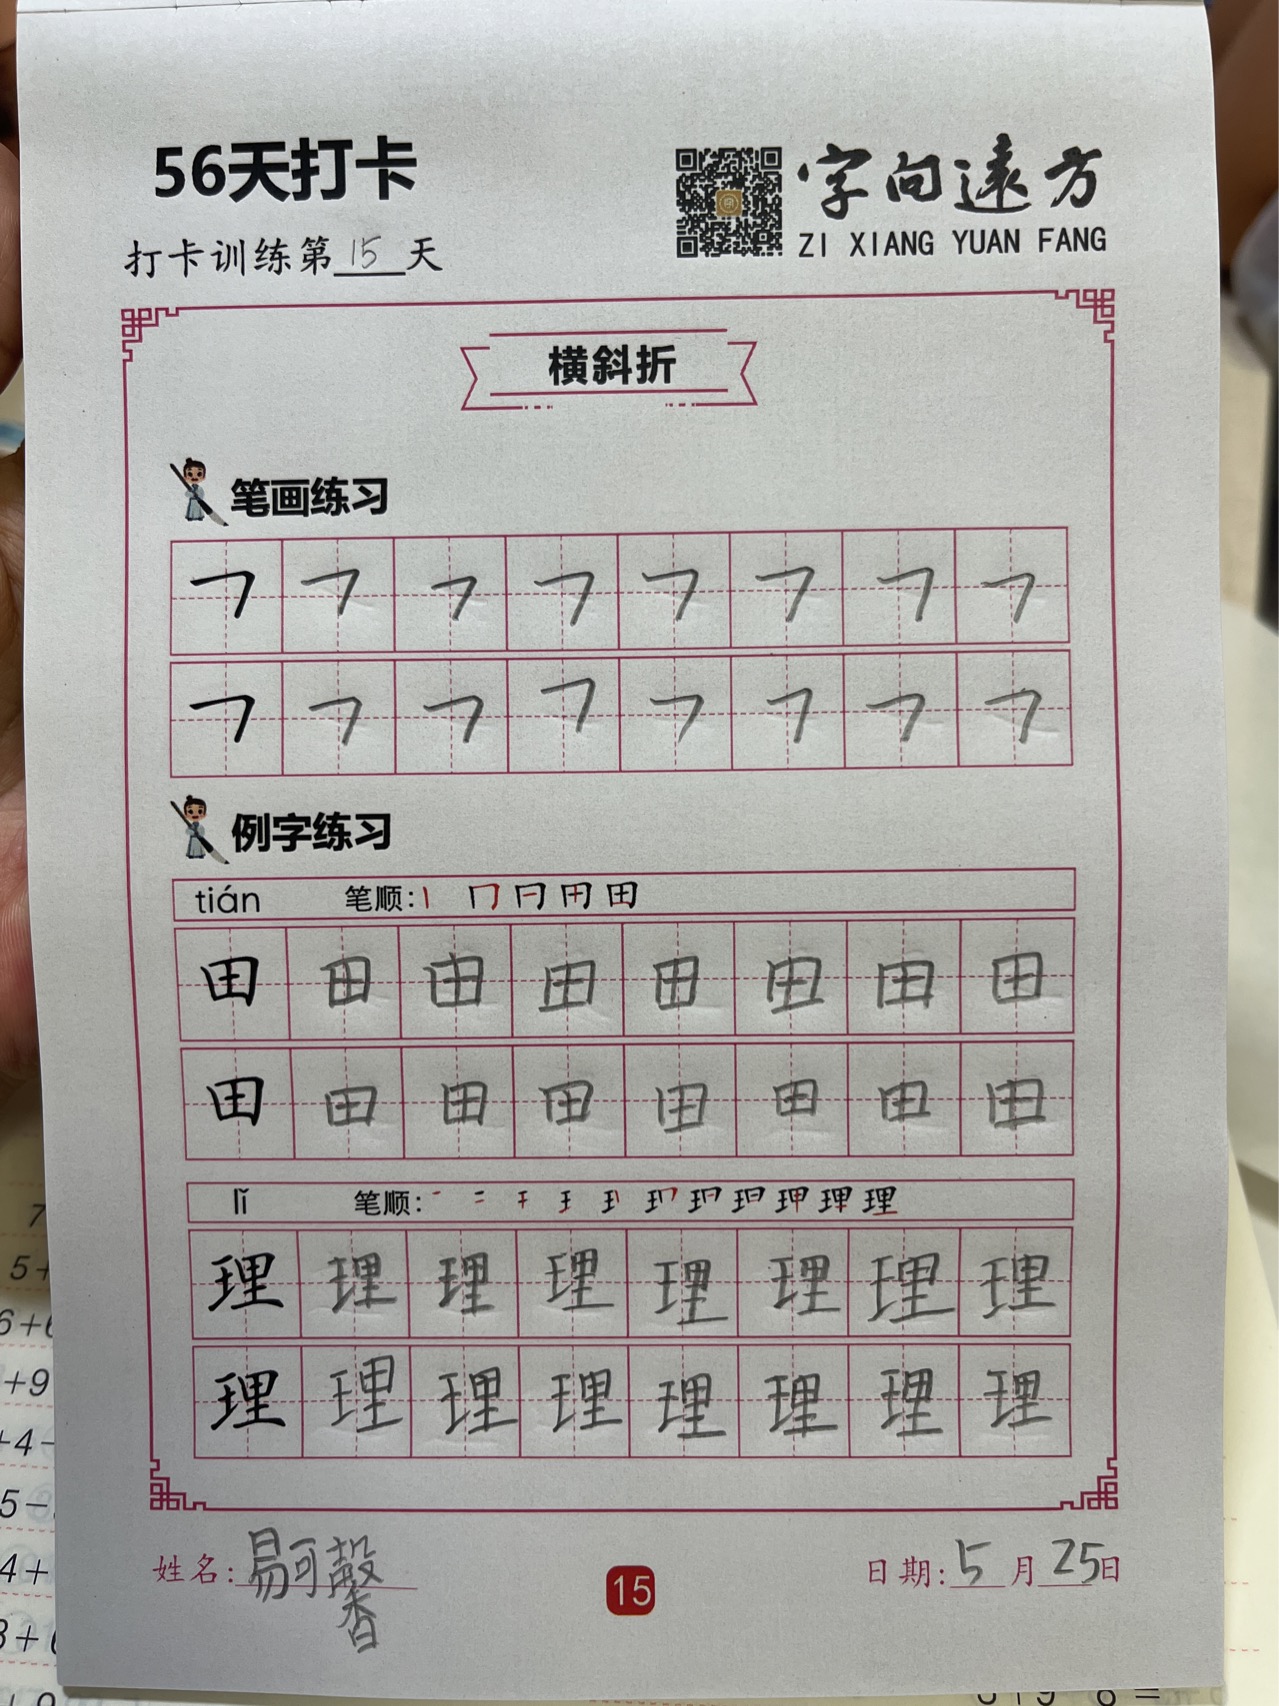 56天打卡
字向遠方
ZI XIANG YUAN FANG
打卡训练第15天
横斜折
笔画练习
㇇ ㇇ ㇇ ㇇ ㇇ ㇇ ㇇ ㇇
㇇ ㇇ ㇇ ㇇ ㇇ ㇇ ㇇ ㇇
例字练习
tián 笔顺: 丨 冂 日 用 田
田 田 田 田 田 田 田 田
田 田 田 田 田 田 田 田
lǐ 笔顺: 理
理 理 理 理 理 理 理 理
理 理 理 理 理 理 理 理
姓名: 易可馨
15
日期: 5月25日
7
5+
6+6
+9
+4-
5-
4+
8+6